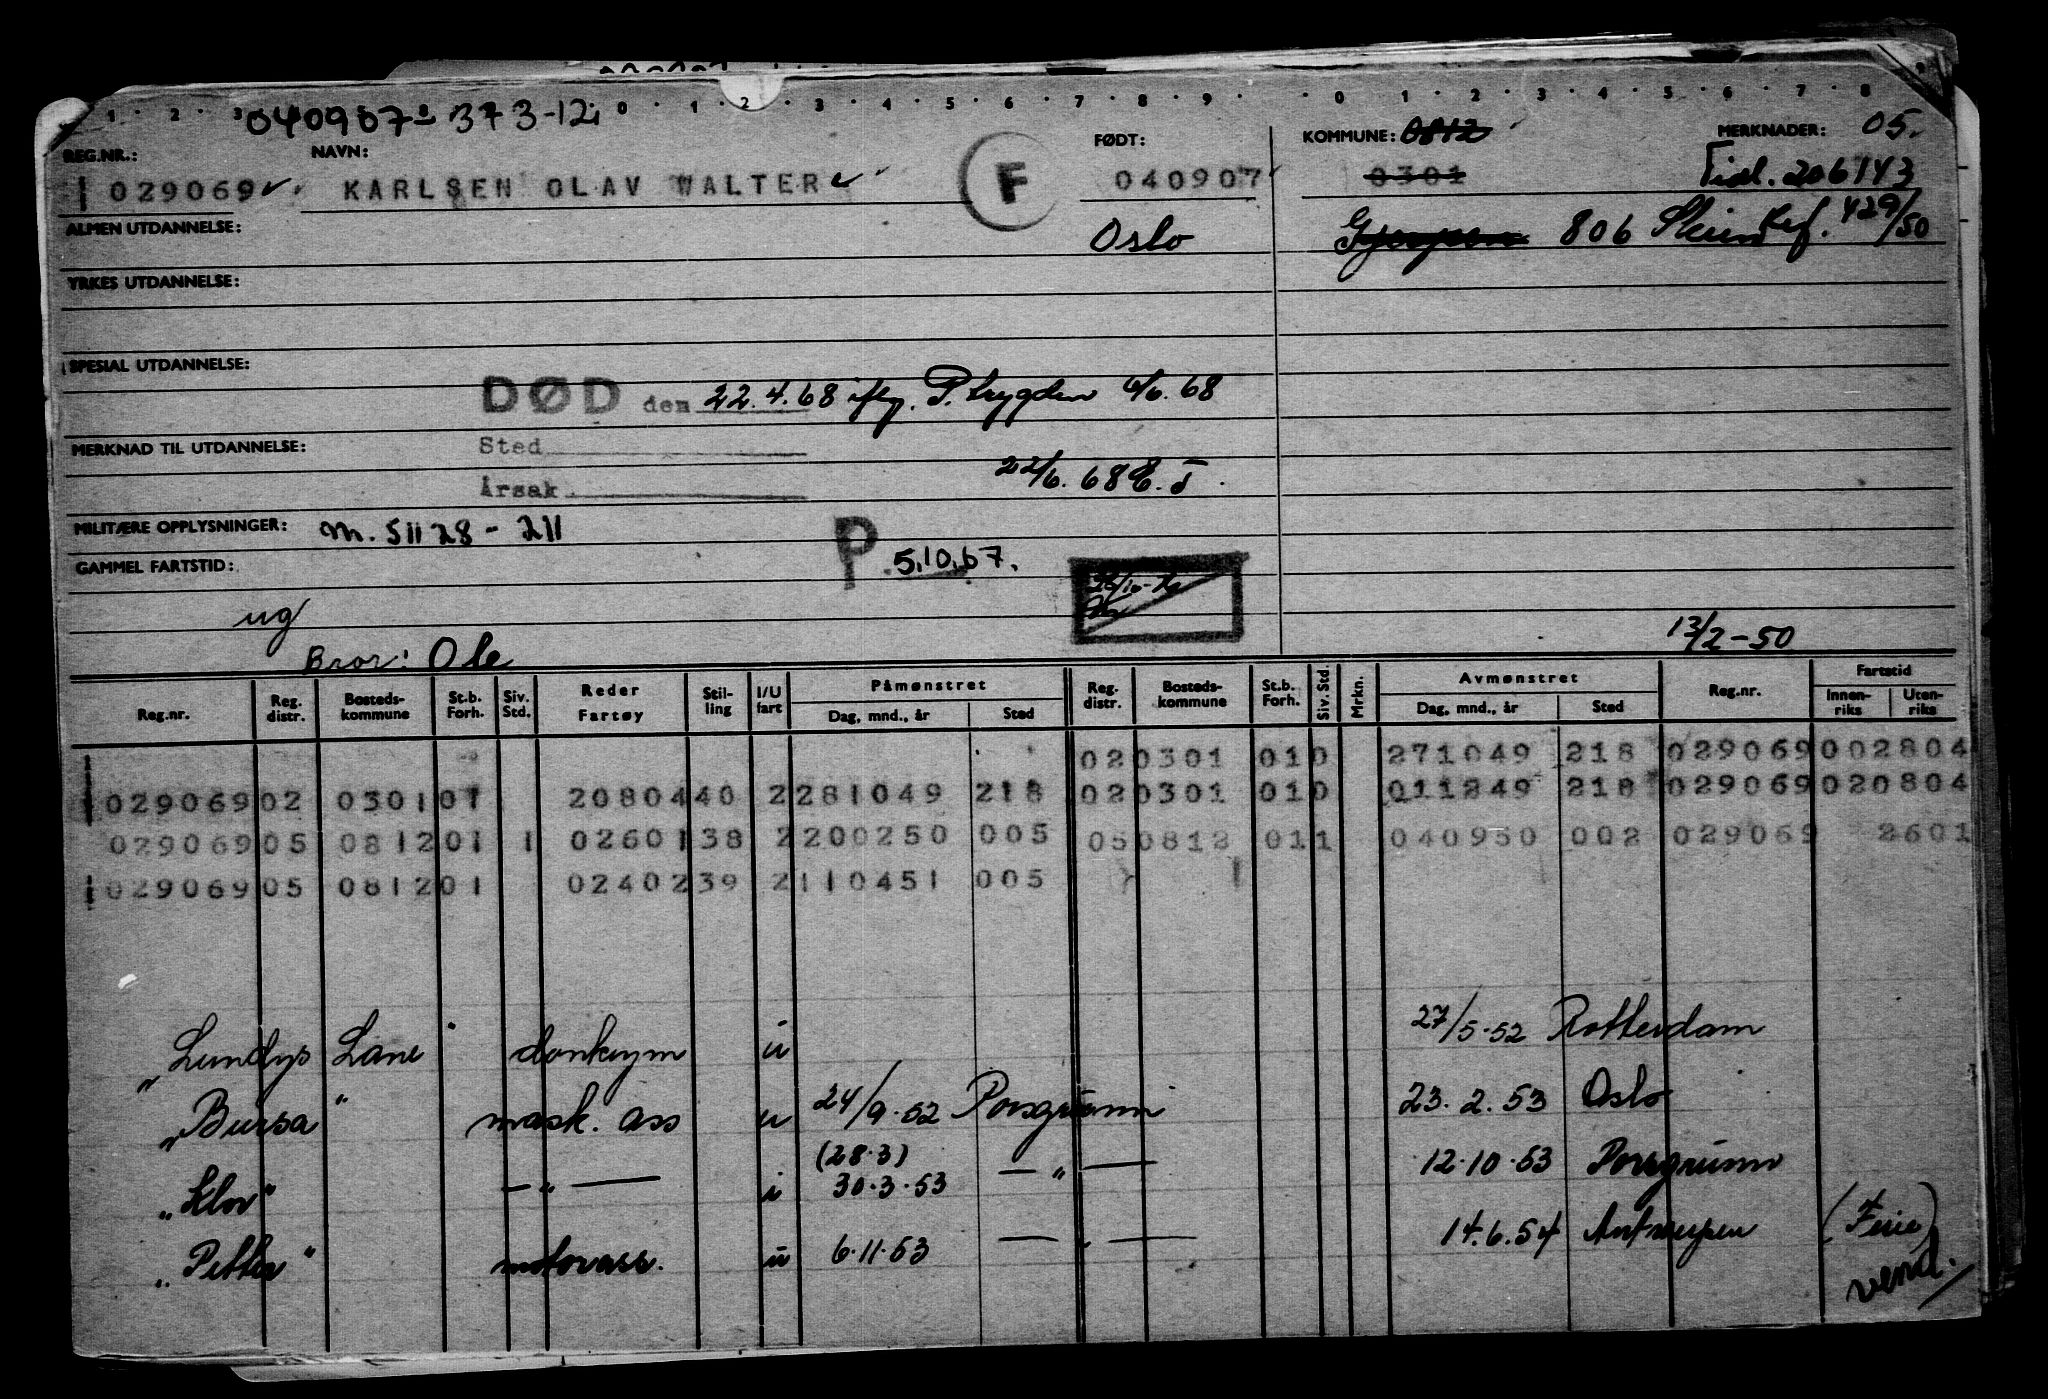 1 2 3 0 1 2 3 4 5 6 7 8 9 0 1 2 3 4 5 6 7 8
040907 373-12
REG.NR.: NAVN: FØDT: KOMMUNE: 0812 MERKNADER: 05.
029069 KARLSEN OLAV WALTER F 040907 0301 Tidl. 206143
ALMEN UTDANNELSE: Oslo 806 Skien Ref. 429/50
YRKES UTDANNELSE:
SPESIAL UTDANNELSE:
DØD den 22.4.68 iflg. P.trygden 6/6.68
MERKNAD TIL UTDANNELSE: Sted
22/6.68
Årsak
MILITÆRE OPPLYSNINGER: m. 5II 28 - 2II
P 5.10.67.
GAMMEL FARTSTID:
ug
13/2-50
Bror: Ole
Reg.nr. Reg. distr. Bosteds-kommune St.b. Forh. Siv. Std. Reder Fartøy Stil-ling I/U fart Påmønstret Dag, mnd., år Sted Reg. distr. Bosteds-kommune St.b. Forh. Siv. Std. Mrkn. Avmønstret Dag, mnd., år Sted Reg.nr. Fartstid Innen-riks Uten-riks
020301 010 271049 218 029069 002804
029069 02 0301 01 2080440 2 281049 218 020301 010 011249 218 029069 020804
029069 05 0812 01 1 0260138 2 200250 005 050812 011 040950 002 029069 2601
029069 05 0812 01 0240239 2 110451 005
"Lundys Lane" donkeym u 27/5-52 Rotterdam
"Bursa" mask. ass u 24/9-52 Porsgrunn 23.2.53 Oslo
(28.3)
"Klov" — " — i 30.3.53 — " — 12.10.53 Porsgrunn
"Petter" motorass. u 6.11.53 — " — 14.6.54 Antwerpen (Ferie)
vend.